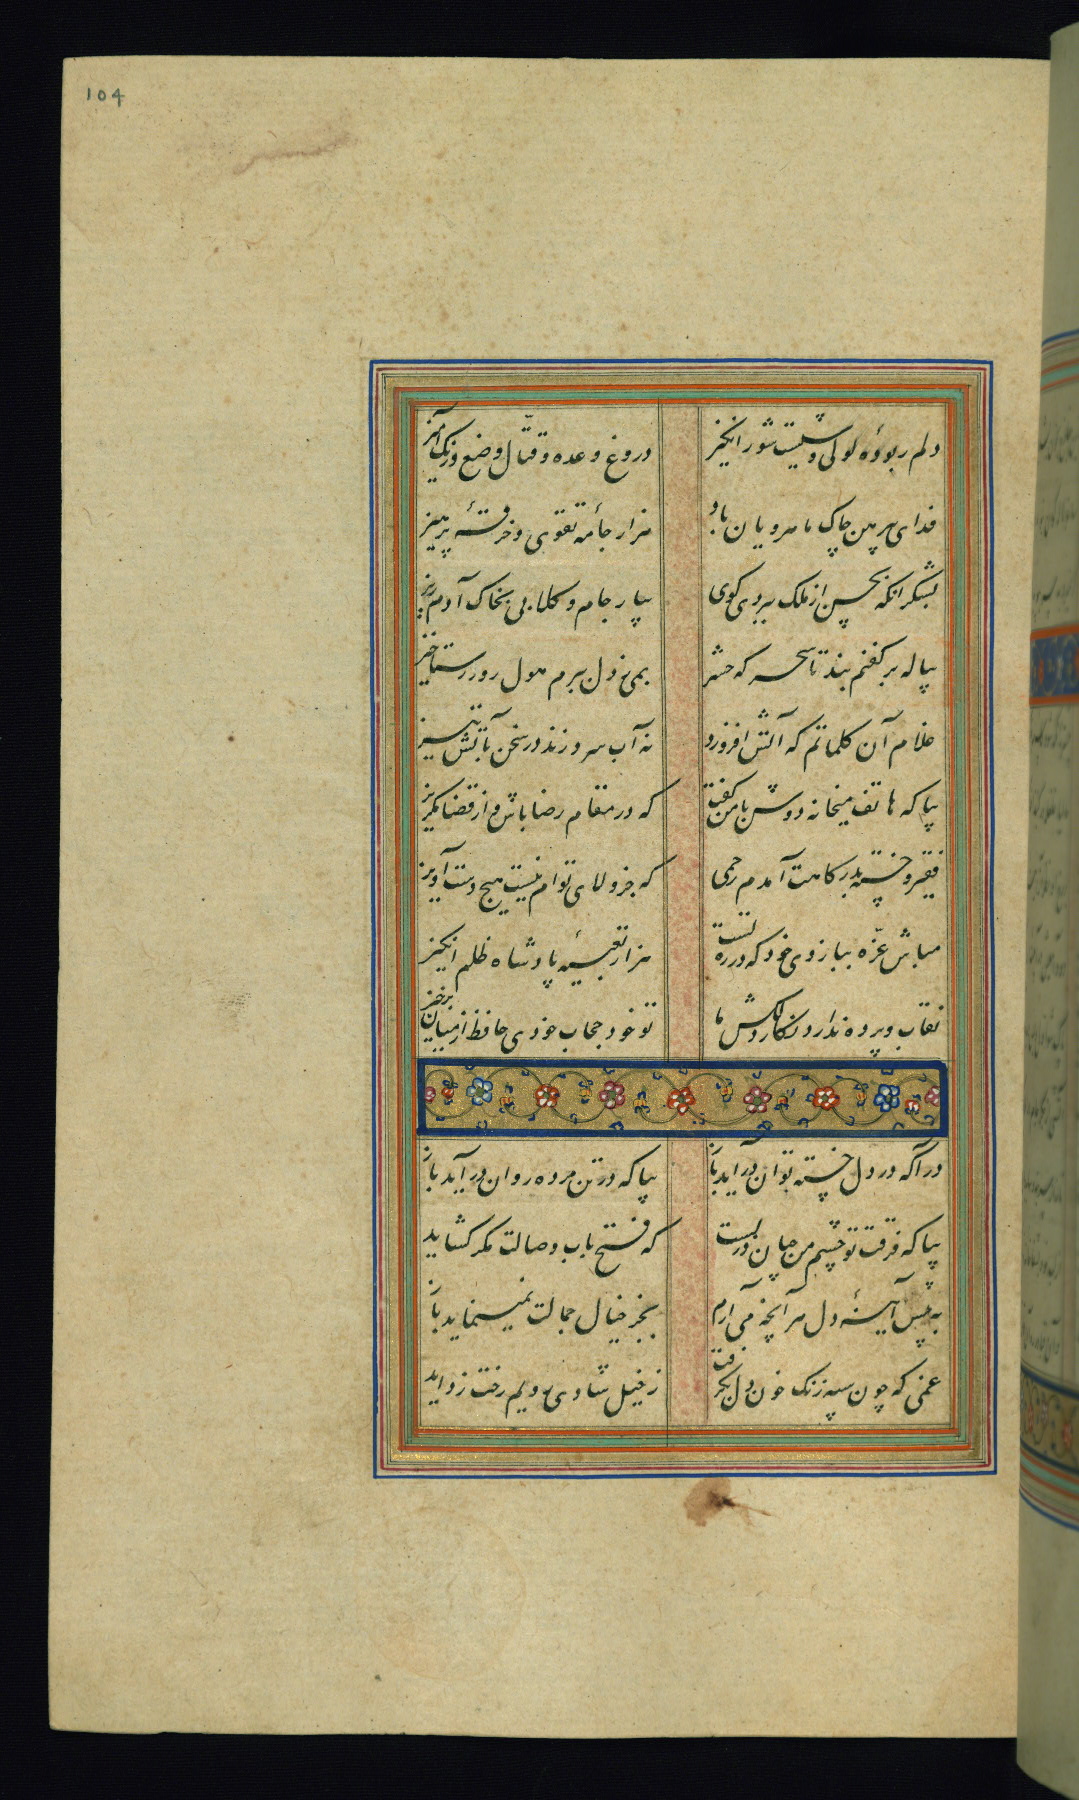 104
دلم ربودهٔ لولی وشیست شور انگیز
دروغ وعده و قتّال وضع و رنگ آمیز
فدای پیرهن چاک ماهرویان باد
هزار جامهٔ تقوی و خرقهٔ پرهیز
بشکر آنکه بحسن از ملک ببردی کوی
بیار جام و کلابی بخاک آدم ریز
پیاله بر کفنم بند تا سحرکه حشر
بمی ز دل ببرم هول روز رستاخیز
غلام آن کلماتم که آتش افروزد
نه آب سرد زند در سخن بآتش تیز
بیا که هاتف میخانه دوش با من کفت
که در مقام رضا باش و از قضا مکریز
فقیر و خسته بدرکاهت آمدم رحمی
که جز ولای توام نیست هیچ دست آویز
مباش غرّه ببازوی خود که در ره تست
هزار تعبیه پادشاه ظلم انکیز
نقاب و پرده ندارد نکار دلکش ما
تو خود حجاب خودی حافظ از میان برخیز
درآ که در دل خسته توان درآید باز
بیا که در تن مرده روان درآید باز
بیا که فرقت تو چشم من چنان در بست
که فتح باب وصالت مکر کشاید
به پیش آینهٔ دل هر آنچه می آرم
بجز خیال جمالت نمینماید باز
غمی که چون سپه زنک خون دل بکرفت
ز خیل شادی رویم رخت زداید